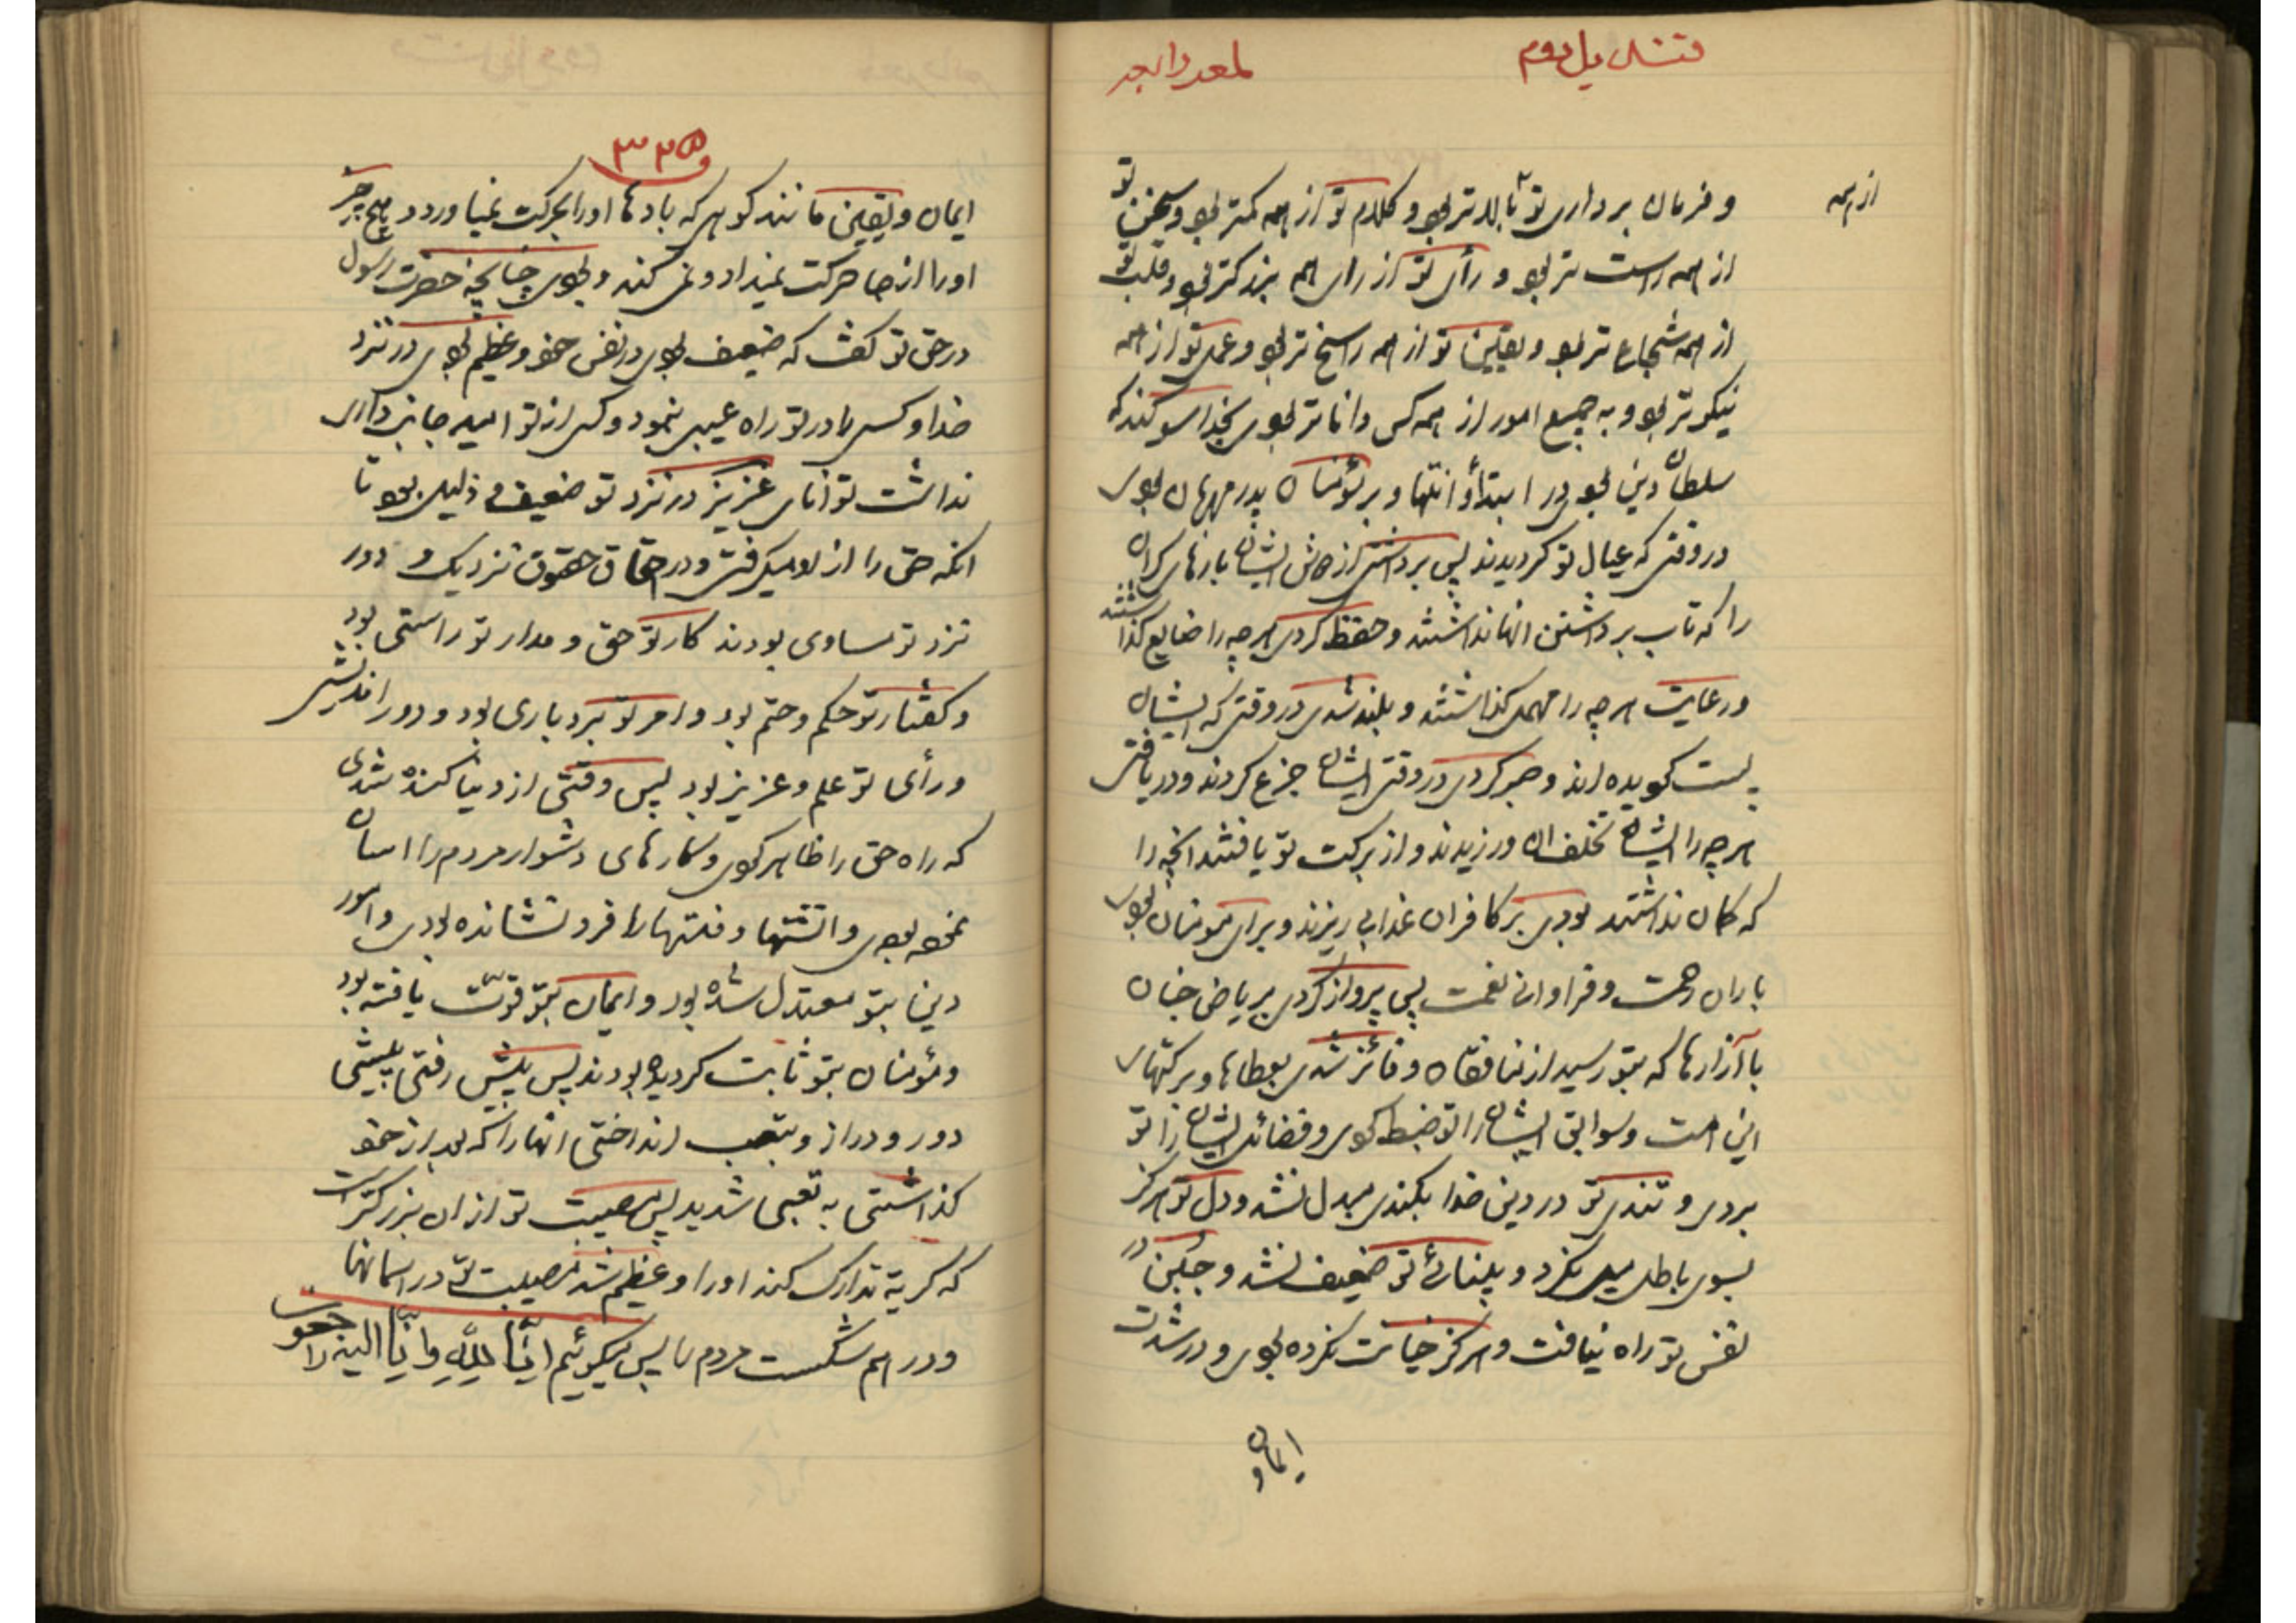 قندیل دوم
لمعه رابعه
از همه
و فرمان برداری تو بالاتر بود و کلام تو از همه کمتر بود و سخن تو
از همه راست تر بود و رأی تو از رای همه بزرکتر بود و قلب تو
از همه شجاع تر بود و یقین تو از همه راسخ تر بود و عمل تو از همه
نیکوتر بود و به جمیع امور از همه کس داناتر بودی بخدا سوکند که
سلطان دین بودی در ابتدأ و انتها و بر مؤمنان پدر مهربان بودی
در وقتی که عیال تو کردیدند پس برداشتی از دوش ایشان بارهای کران
را که تاب برداشتن انها نداشتند و حفظ کردی هرچه را ضایع کذاشتند
و رعایت هرچه را مهمل کذاشتند و بلند شدی در وقتی که ایشان
پست کردیده اند و صبر کردی در وقتی ایشان جزع کردند و دریافتی
هرچه را ایشان تخلف از ان ورزیدند و از برکت تو یافتند انچه را
که کمان نداشتند بودی بر کافران عذاب ریزنده و برای مومنان بودی
باران رحمت و فراوانی نعمت پس پرواز کردی بریاض جنان
با آزارها که بتو رسید از منافقان و فائز شدی بعطاها و برکتهای
این امت و سوابق ایشان را تو ضبط کردی و فضائل ایشان را تو
بردی و تندی تو در دین خدا بکندی مبدل نشد و دل تو هرکز
بسوی باطل میل نکرد و بینائی تو ضعیف نشد و جبن در
نفس تو راه نیافت و هرکز خیانت نکرده بودی و در شدت
ایمان و
۳۲۵
ایمان و یقین مانند کوهی که بادها اورا بحرکت نمیاورد و هیچ چیز
اورا از جا حرکت نمیداد و نمی کند و بودی چنانچه حضرت رسول
در حق تو کفت که ضعیف بودی در نفس خود و عظیم بودی در نزد
خدا و کسی را در تو راه عیبی نبود و کسی از تو امید جانب داری
نداشت توانای عزیز در نزد تو ضعیف و ذلیل بود تا
انکه حق را از او میکرفتی و در احقاق حقوق نزدیک و دور
نزد تو مساوی بودند کار تو حق و مدار تو راستی بود
و کفتار تو حکم و حتم بود و امر تو بردباری بود و دوراندیشی
و رأی تو علم و عزیز بود پس وقتی از دنیا کنده شدی
که راه حق را ظاهر کردی و کارهای دشوار مردم را اسان
نموده بودی و اتشها و فتنها را فرو نشانده بودی و امور
دین بتو معتدل شده بود و ایمان بتو قوّت یافته بود
و مؤمنان بتو ثابت کردیده بودند پس پیش رفتی پیشی
دور و دراز و بتعب انداختی انها را که بعد از خود
کذاشتی به تعبی شدید پس مصیبت تو از ان بزرکتر است
که کریه تدارک کند اورا و عظیم شد مصیبت تو در اسمانها
و در هم شکست مردم را پس میکوئیم انّا للّٰه و انّا الیه راجعون